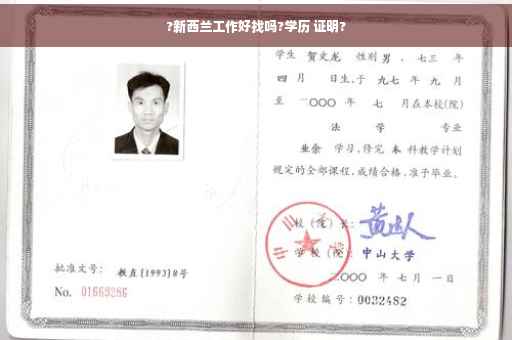 ?新西兰工作好找吗?学历 证明?
学生 贺文龙 性别 男 、七三 年
四 月 日生,于 九七 年 九 月
至 二〇〇〇 年 七 月在本校(院)
法 学 专业
业余 学习,修完 本 科教学计划
规定的全部课程,成绩合格,准予毕业。
校(院)长:
学校(院): 中山大学
二〇〇〇 年 七 月 一 日
批准文号: 教直[1993]8号
No. 01669286
学校编号: 0032482